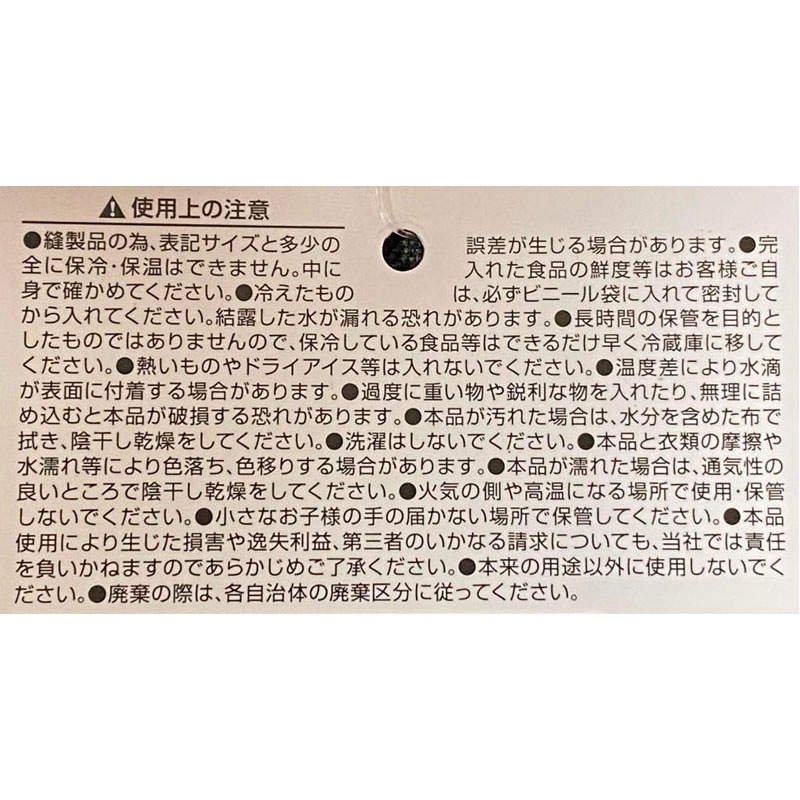 ⚠使用上の注意
●縫製品の為、表記サイズと多少の 誤差が生じる場合があります。●完
全に保冷・保温はできません。中に 入れた食品の鮮度等はお客様ご自
身で確かめてください。●冷えたもの は、必ずビニール袋に入れて密封して
から入れてください。結露した水が漏れる恐れがあります。●長時間の保管を目的と
したものではありませんので、保冷している食品等はできるだけ早く冷蔵庫に移して
ください。●熱いものやドライアイス等は入れないでください。●温度差により水滴
が表面に付着する場合があります。●過度に重い物や鋭利な物を入れたり、無理に詰
め込むと本品が破損する恐れがあります。●本品が汚れた場合は、水分を含めた布で
拭き、陰干し乾燥をしてください。●洗濯はしないでください。●本品と衣類の摩擦や
水濡れ等により色落ち、色移りする場合があります。●本品が濡れた場合は、通気性の
良いところで陰干し乾燥をしてください。●火気の側や高温になる場所で使用・保管
しないでください。●小さなお子様の手の届かない場所で保管してください。●本品
使用により生じた損害や逸失利益、第三者のいかなる請求についても、当社では責任
を負いかねますのであらかじめご了承ください。●本来の用途以外に使用しないでく
ださい。●廃棄の際は、各自治体の廃棄区分に従ってください。